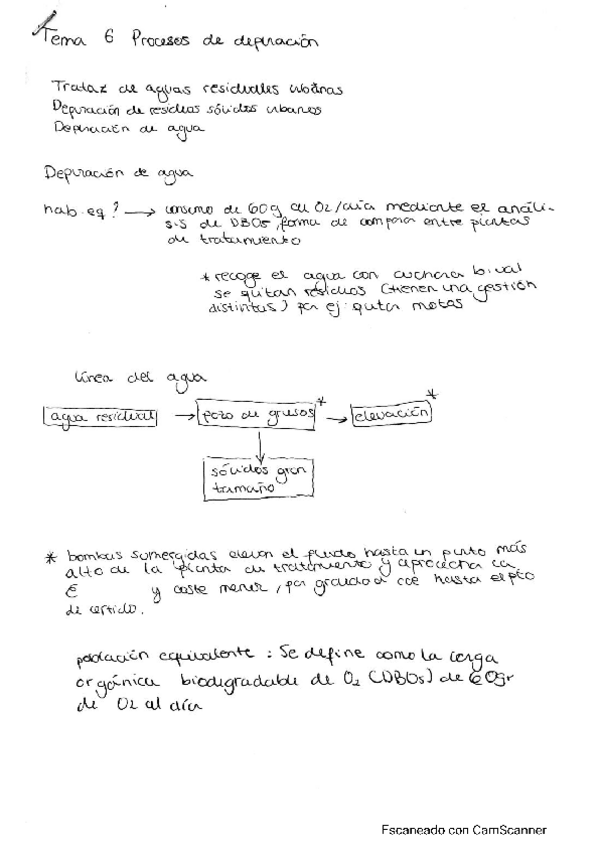 Tema 6 Procesos de depuración
Trataz de aguas residuales urbanas
Depuración de residuos sólidos urbanos
Depuración de agua
Depuración de agua
hab. eq ? → consumo de 60g en O2/día mediante el análi-
s.s de DBO5, forma de compara entre plantas
de tratamiento
* recoge el agua con cuchara bival
se quitan residuos (tienen una gestión
distintas) por ej: quitar motas
línea del agua
agua residual → pozo de gruesos * → elevación *
sólidos gran
tamaño
* bombas sumergidas elevan el fluido hasta un punto más
alto de la planta de tratamiento y aprovecha la
E y coste menor, por gravedad cae hasta el pto
de vertido.
población equivalente : Se define como la carga
orgánica biodegradable de O2 (DBO5) de 60gr
de O2 al día
Escaneado con CamScanner